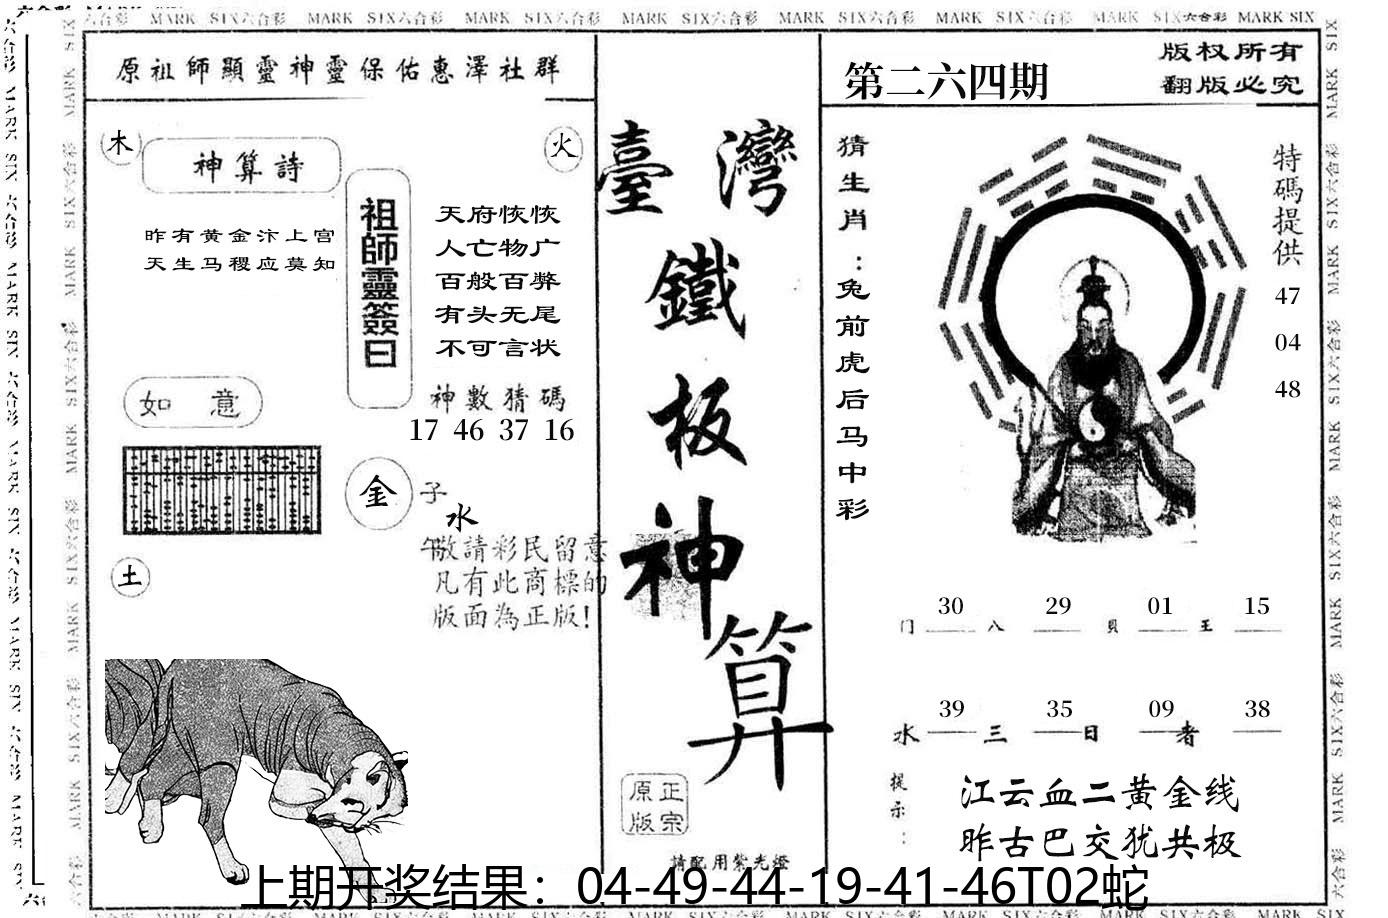 MARK SIX六合彩 MARK SIX六合彩 MARK SIX六合彩 MARK SIX六合彩 MARK SIX六合彩 MARK SIX六合彩 MARK SIX六合彩 MARK SIX
原祖師顯靈神靈保佑惠澤社群
木
火
神算詩
昨有黄金汴上宫
天生马稷应莫知
祖師靈簽曰
天府恢恢
人亡物广
百般百弊
有头无尾
不可言状
神數猜碼
17 46 37 16
如意
金
子
水
午
土
敬請彩民留意
凡有此商標的
版面為正版!
臺灣
鐵
板
神
算
正宗
原版
請配用紫光燈
第二六四期
版权所有
翻版必究
猜生肖:兔前虎后马中彩
特碼提供
47
04
48
30 29 01 15
门 八 貝 王
39 35 09 38
水 三 日 者
提示:
江云血二黄金线
昨古巴交犹共极
上期开奖结果：04-49-44-19-41-46T02蛇